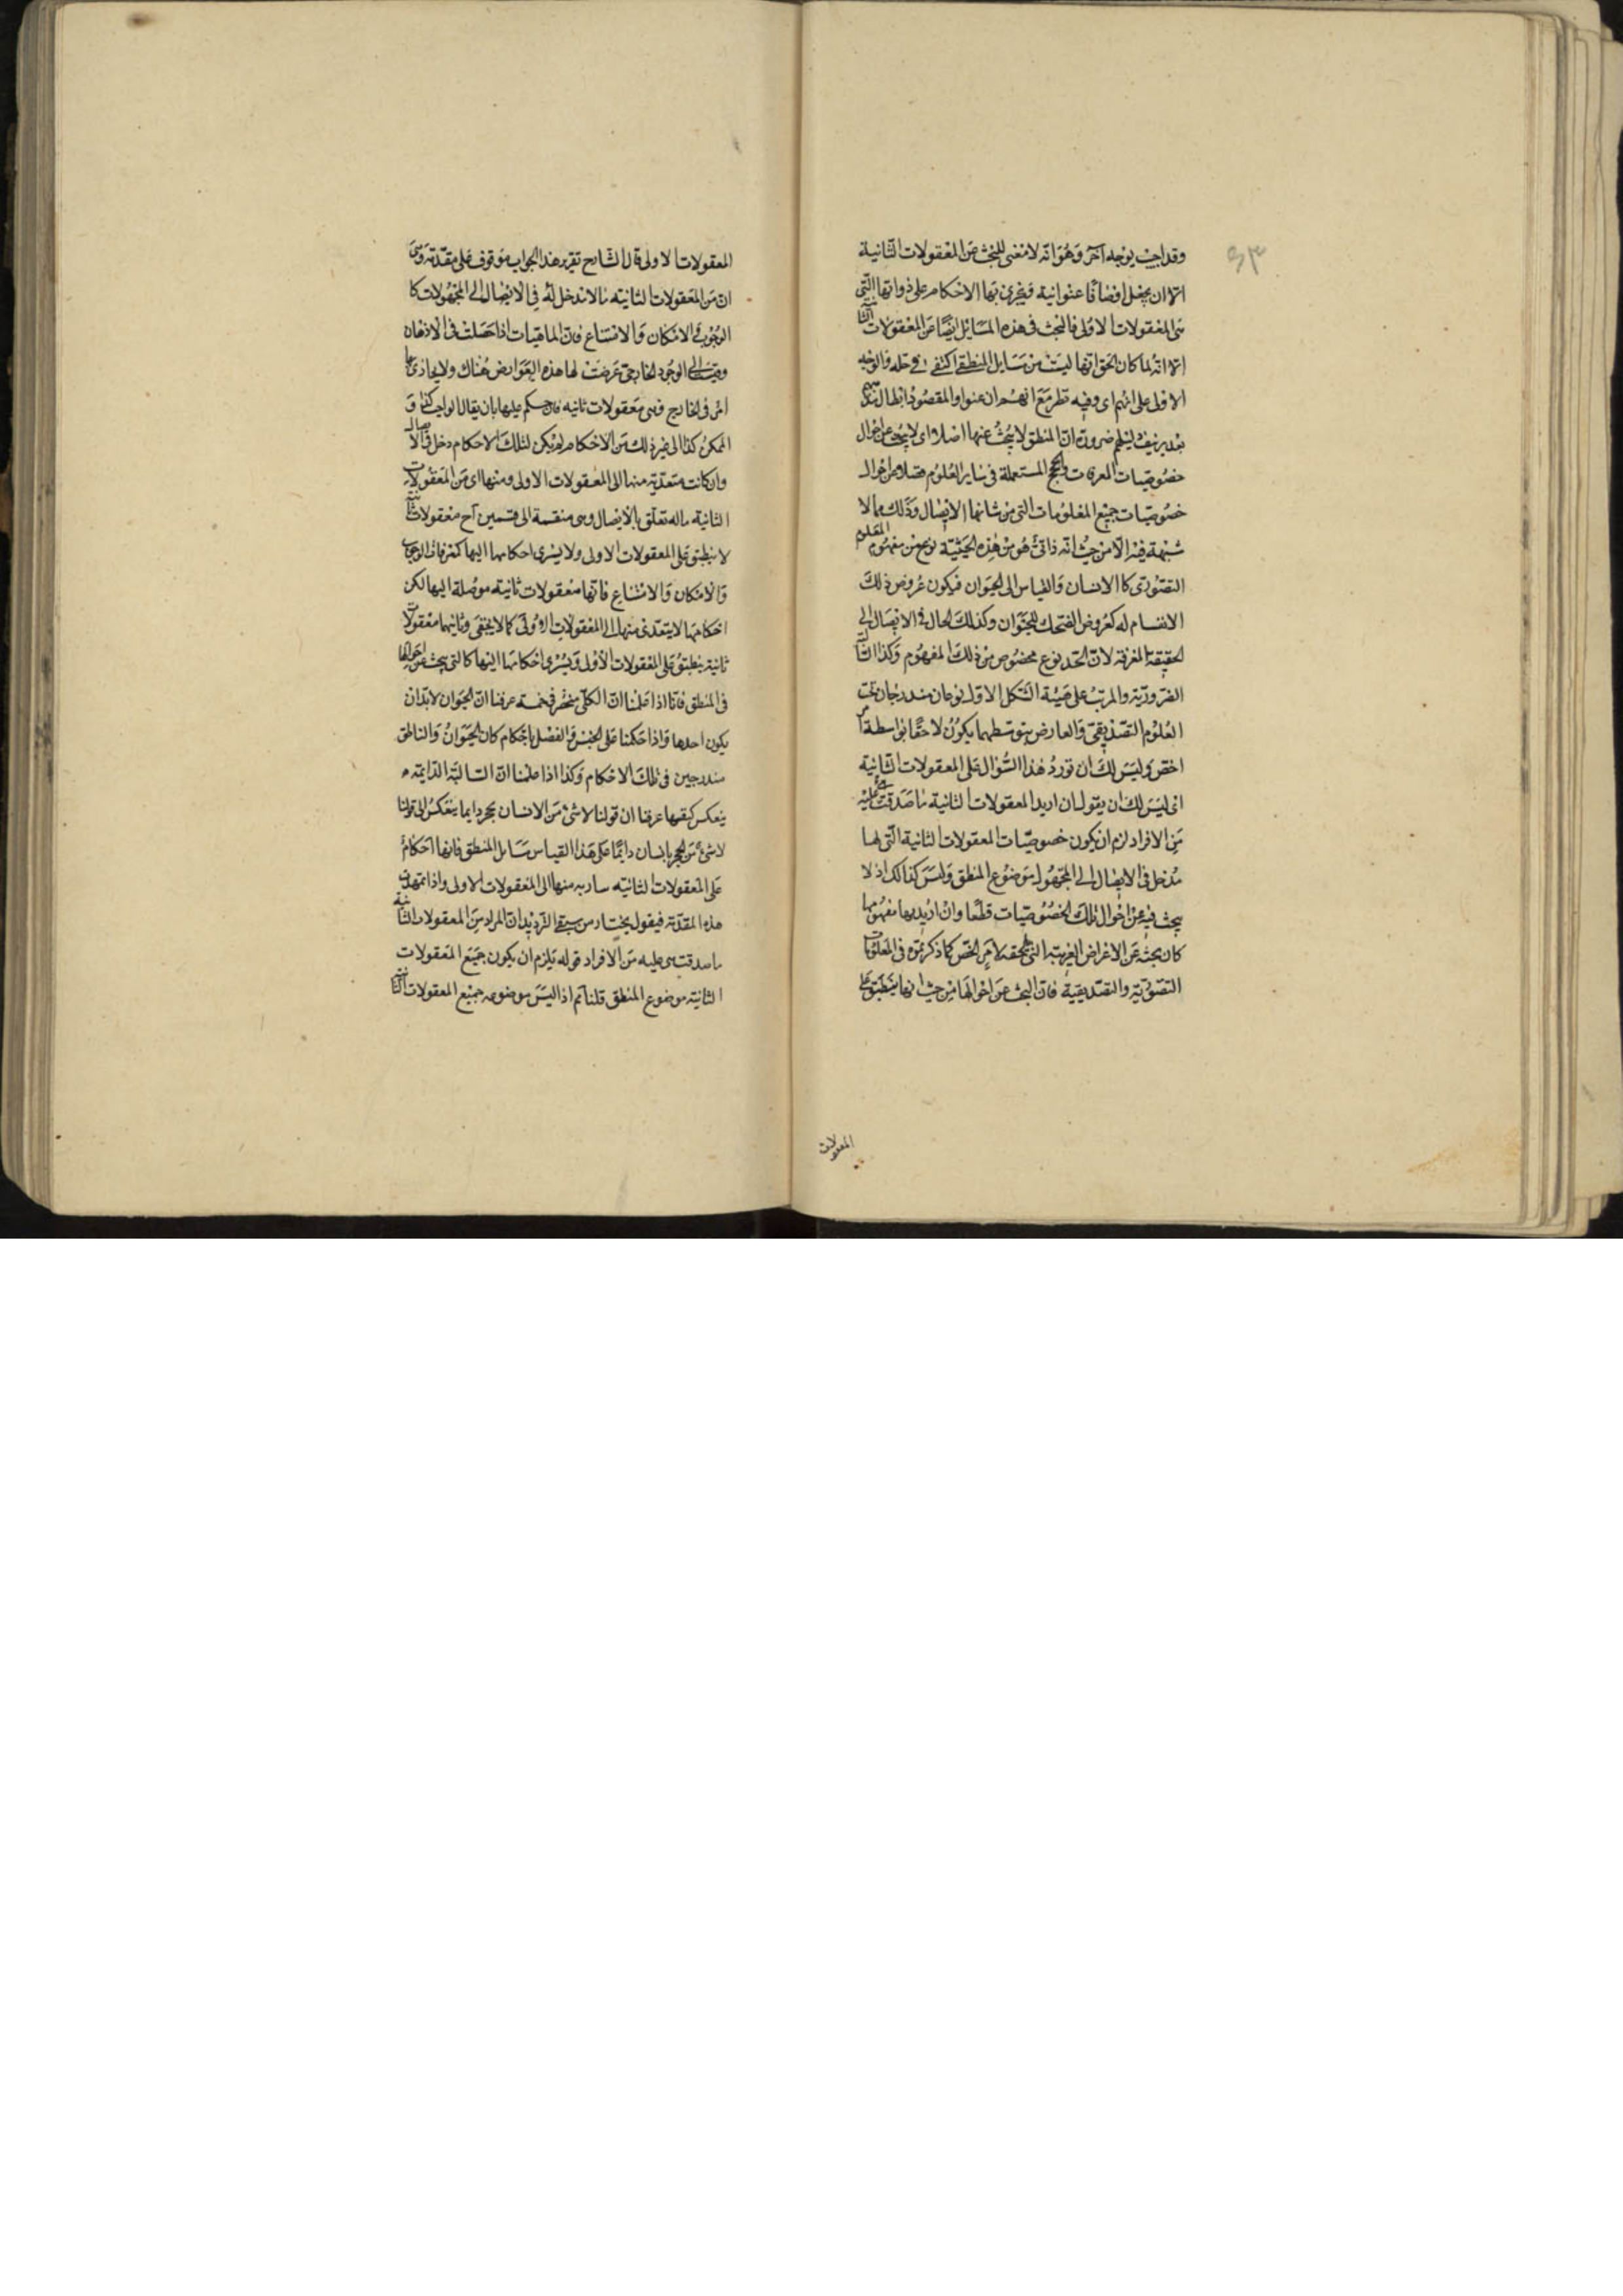 وقد اجيب بوجه آخر وهو انه لا معنى للبحث عن المعقولات الثانية
الا ان يجعل اوصافا عنوانية ويجرى بها الاحكام على ذواتها التى
هى المعقولات الاولى فالبحث فى هذه المسايل ايضا عن المعقولات الثانية
الا انه لما كان الحق انها ليست من مسايل المنطق اكتفى فى حله بالوجه
الاولى على انهم اى وفيه نظر مع انهم ان عنوا والمقصود ابطال
بعد تزييف ضرورة ان المنطق لا يبحث عنها اصلا اى لا يبحث عن احوال
خصوصيات المعرفات والحجج المستعملة فى ساير العلوم فضلا عن احوال
خصوصيات جميع المعلومات التى من شانها الايصال وذلك مما لا
شبهة فيه الا من حيث انه ذاتى هو من هذه الحيثية نوع من مفهوم المعلوم
التصورى كالانسان والقياس الى الحيوان فيكون عروض ذلك
الانقسام له كعروض الضحك للحيوان وكذلك الحال فى الايصال الى
الحقيقة المعرفة لان الحد نوع مخصوص من ذلك المفهوم وكذا
الضرورية والمرتب على هيئة الشكل الاول نوعان مندرجان تحت
العلوم التصديقى والعارض بتوسطهما يكون لاحقا بواسطة امر
اخص وليس لك ان تورد هذا السؤال على المعقولات الثانية
اى ليس لك ان يقول ان اريد المعقولات الثانية ما صدقت هى عليه
من الافراد لزم ان يكون خصوصيات المعقولات الثانية التى لها
مدخل فى الايصال الى المجهول موضوع المنطق وليس كذلك اذ لا
يبحث فيه عن احوال تلك الخصوصيات قطعا وان اريد بها مفهومها
كان بحثه عن الاعراض الغريبة التى تلحقه لامر اخص كما ذكرتموه فى المعلومات
التصورية والتصديقية فان البحث عن احوالها من حيث انها ينطبق على
المعقولات
المعقولات الاولى قال الشارح تقرير هذا الجواب موقوف على مقدمة وهى
ان من المعقولات الثانية ما لا مدخل له فى الايصال الى المجهولات كا
الوجوب والامكان والامتناع فان الماهيات اذا حصلت فى الاذهان
وقيست الى الوجود الخارجى عرضت لها هذه العوارض هناك ولا يحاذى بها
امر فى الخارج فهى معقولات ثانيه فان حكم عليها بان يقال الواجب كذا و
الممكن كذا الى غير ذلك من الاحكام لم يكن لتلك الاحكام دخل فى الايصال
وان كانت متعدية منها الى المعقولات الاولى ومنها اى من المعقولات
الثانية ما له تعلق بالايصال وهى منقسمة الى قسمين آح معقولات ثانية
لا ينطبق على المعقولات الاولى ولا يسرى احكامها اليها كمعرفات الوجوب
والامكان والامتناع فانها معقولات ثانية موصلة اليها لكن
احكامها لا يتعدى منها الى المعقولات الاولى كما لا يخفى وثانيهما معقولات
ثانية ينطبق على المعقولات الاولى ويسرى احكامها اليها كالتى يبحث عن احوالها
فى المنطق فانا اذا علمنا ان الكلى منحصر فى خمسة عرفنا ان الحيوان لا بد ان
يكون احدها واذا حكمنا على الجنس والفصل باحكام كان الحيوان والناطق
مندرجين فى تلك الاحكام وكذا اذا علمنا ان السالبة الدايمة
ينعكس كنفسها عرفنا ان قولنا لا شئ من الانسان بحجر دايما ينعكس الى قولنا
لا شئ من الحجر بانسان دايما على هذا القياس مسايل المنطق فانها احكام
على المعقولات الثانية سارية منها الى المعقولات الاولى واذا تمهدت
هذه المقدمة فيقول يختار من شقى الترديد ان المراد من المعقولات الثانية
ما صدقت هى عليه من الافراد قوله يلزم ان يكون جميع المعقولات
الثانية موضوع المنطق قلنا ثم اذ ليس موضوعه جميع المعقولات الثانية